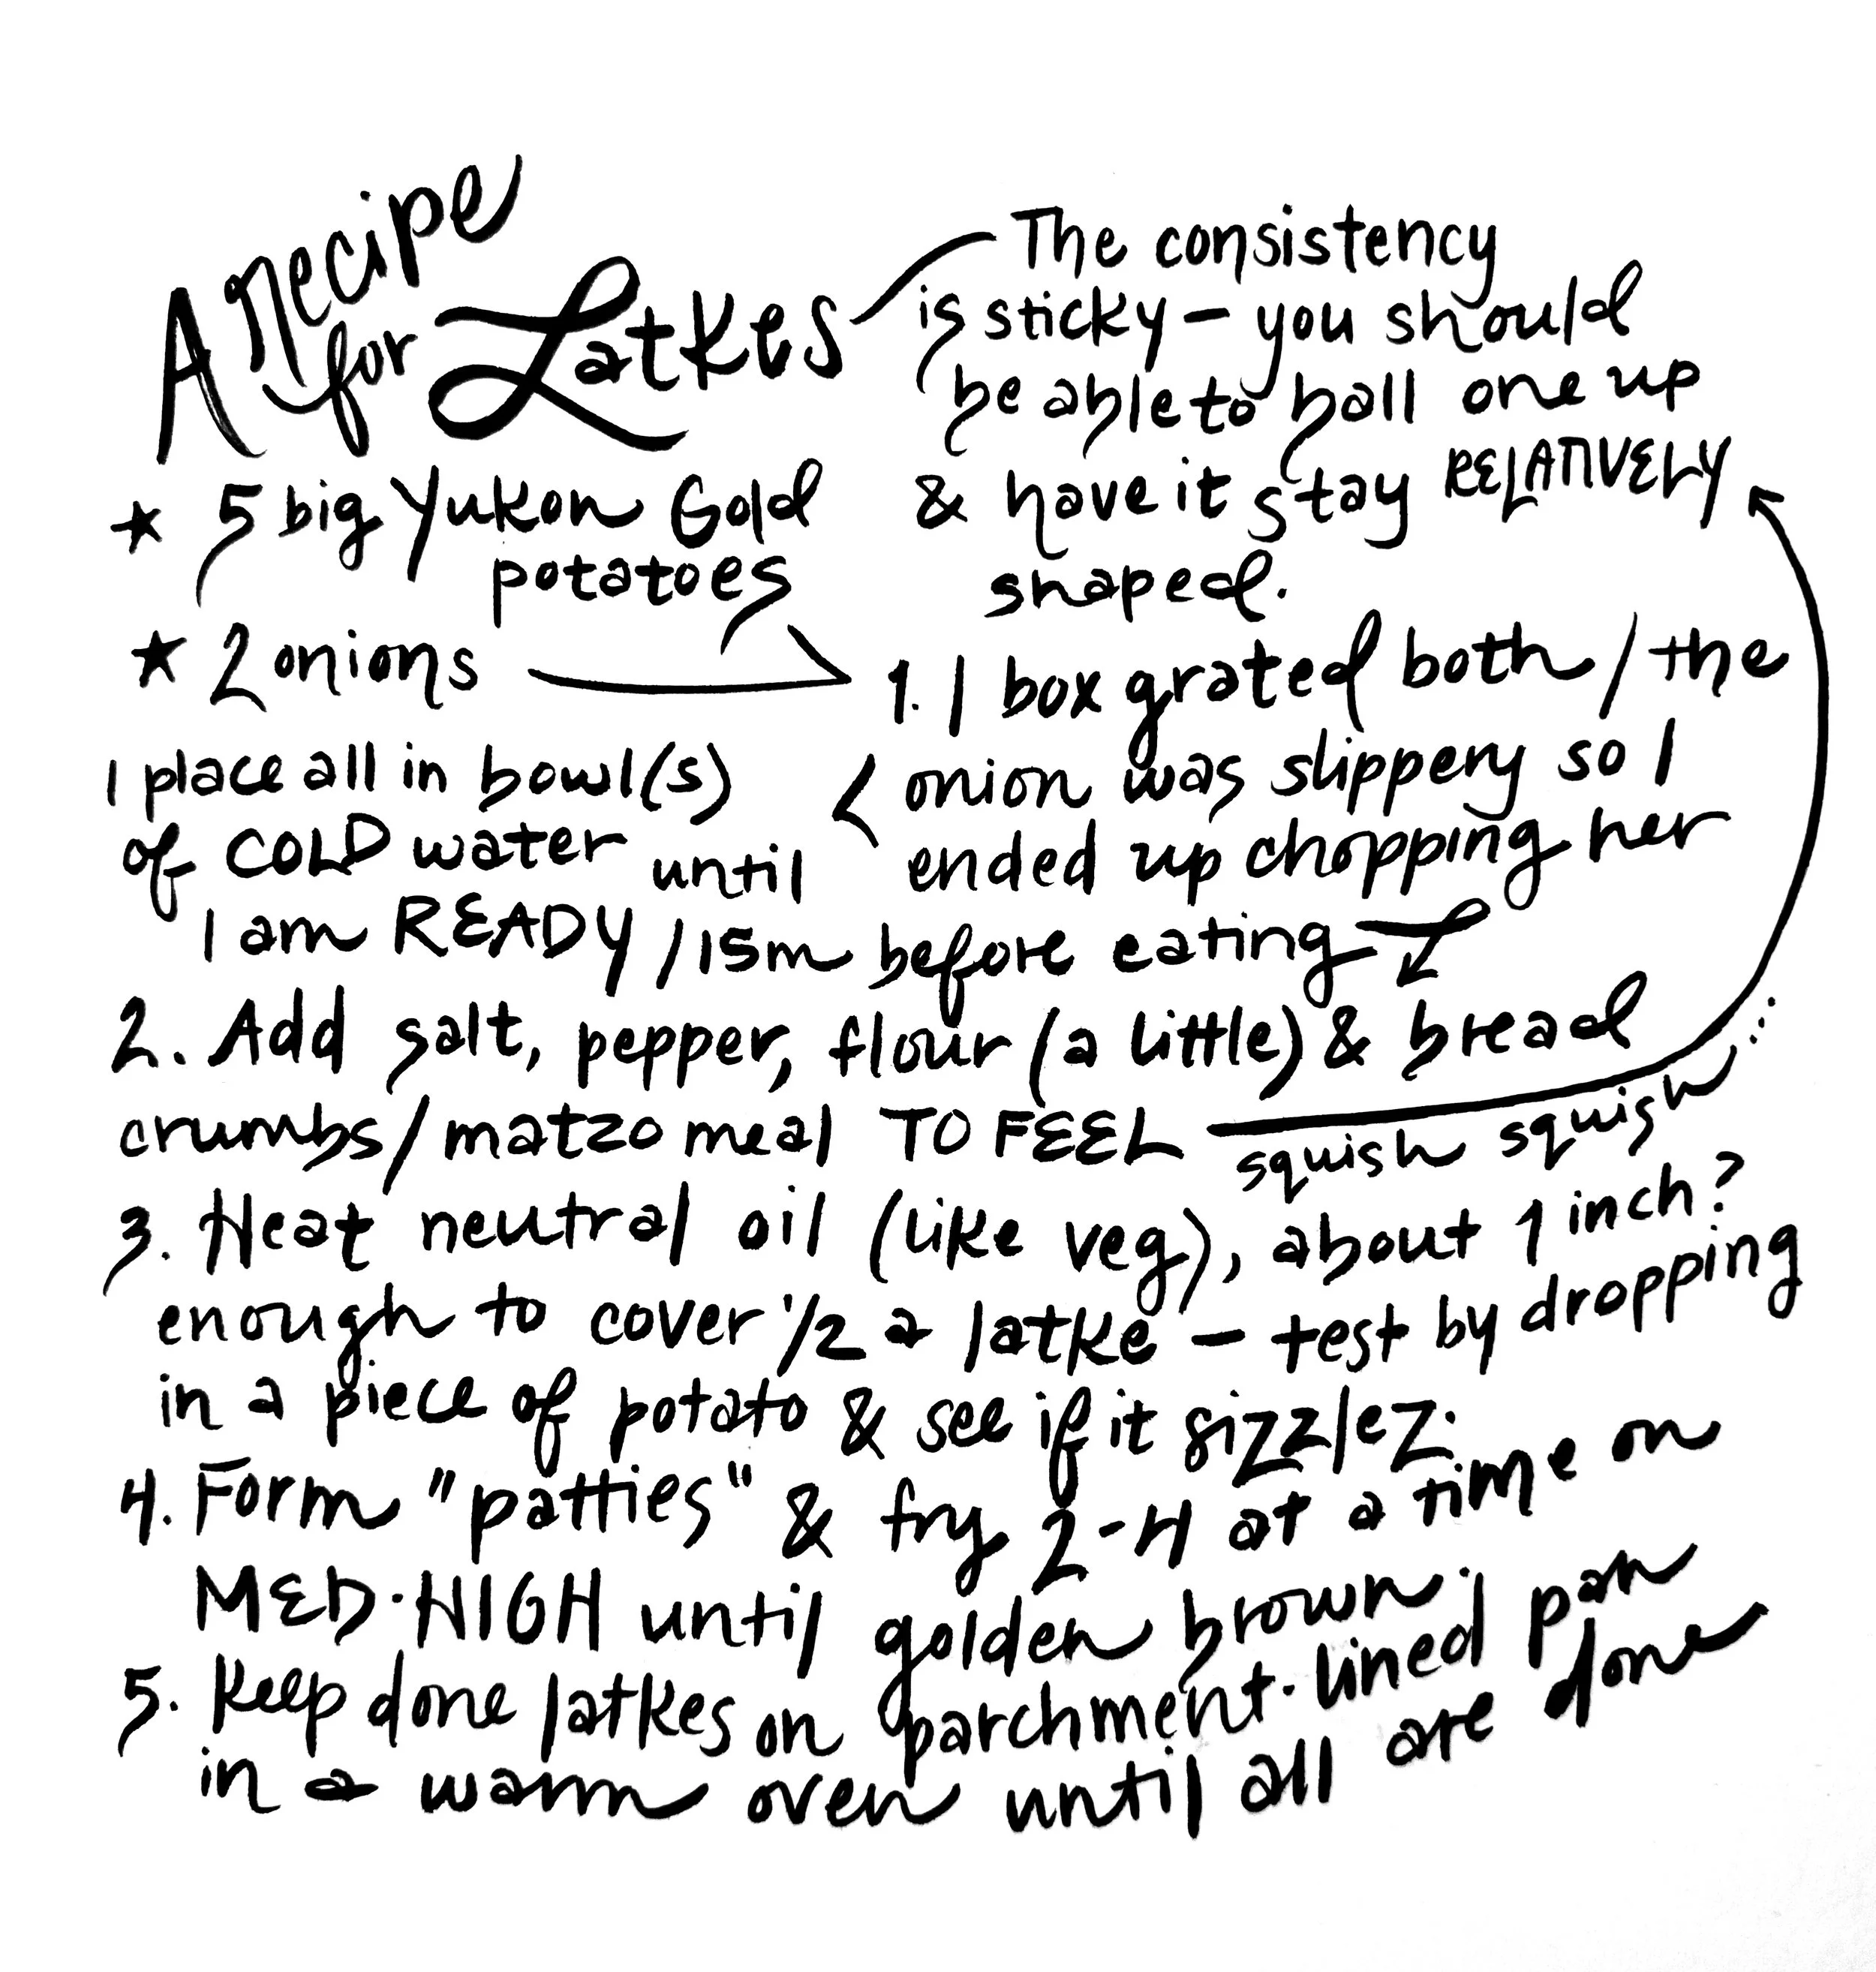 A recipe
for Latkes
The consistency
is sticky – you should
be able to ball one up
& have it stay RELATIVELY
shaped.
★ 5 big Yukon Gold
potatoes
★ 2 onions
1. I box grated both / the
onion was slippery so I
ended up chopping her
I place all in bowl(s)
of COLD water until
I am READY / 15m before eating
2. Add salt, pepper, flour (a little) & bread
crumbs / matzo meal TO FEEL
squish squish :
3. Heat neutral oil (like veg), about 1 inch?
enough to cover 1/2 a latke – test by dropping
in a piece of potato & see if it sizzlez.
4. Form "patties" & fry 2-4 at a time on
MED-HIGH until golden brown.
5. Keep done latkes on parchment-lined pan
in a warm oven until all are done